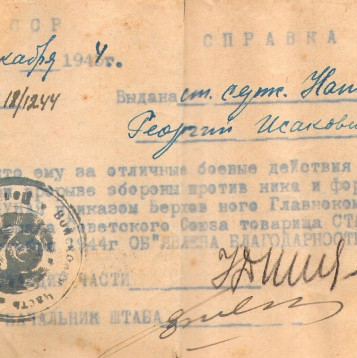 ССР
СПРАВКА
кабря 1944г.
12/1244
Выдана ст. серж. Нап
Георгий Исакови
что ему за отличные боевые действия
рыве обороны против ника и фор
иказом Верхов ного Главноком
ка Советского Союза товарища СТ
1944г ОБ"ЯВЛЕНА БЛАГОДАРНОСТ
ДИР ЧАСТИ
НАЧАЛЬНИК ШТАБА